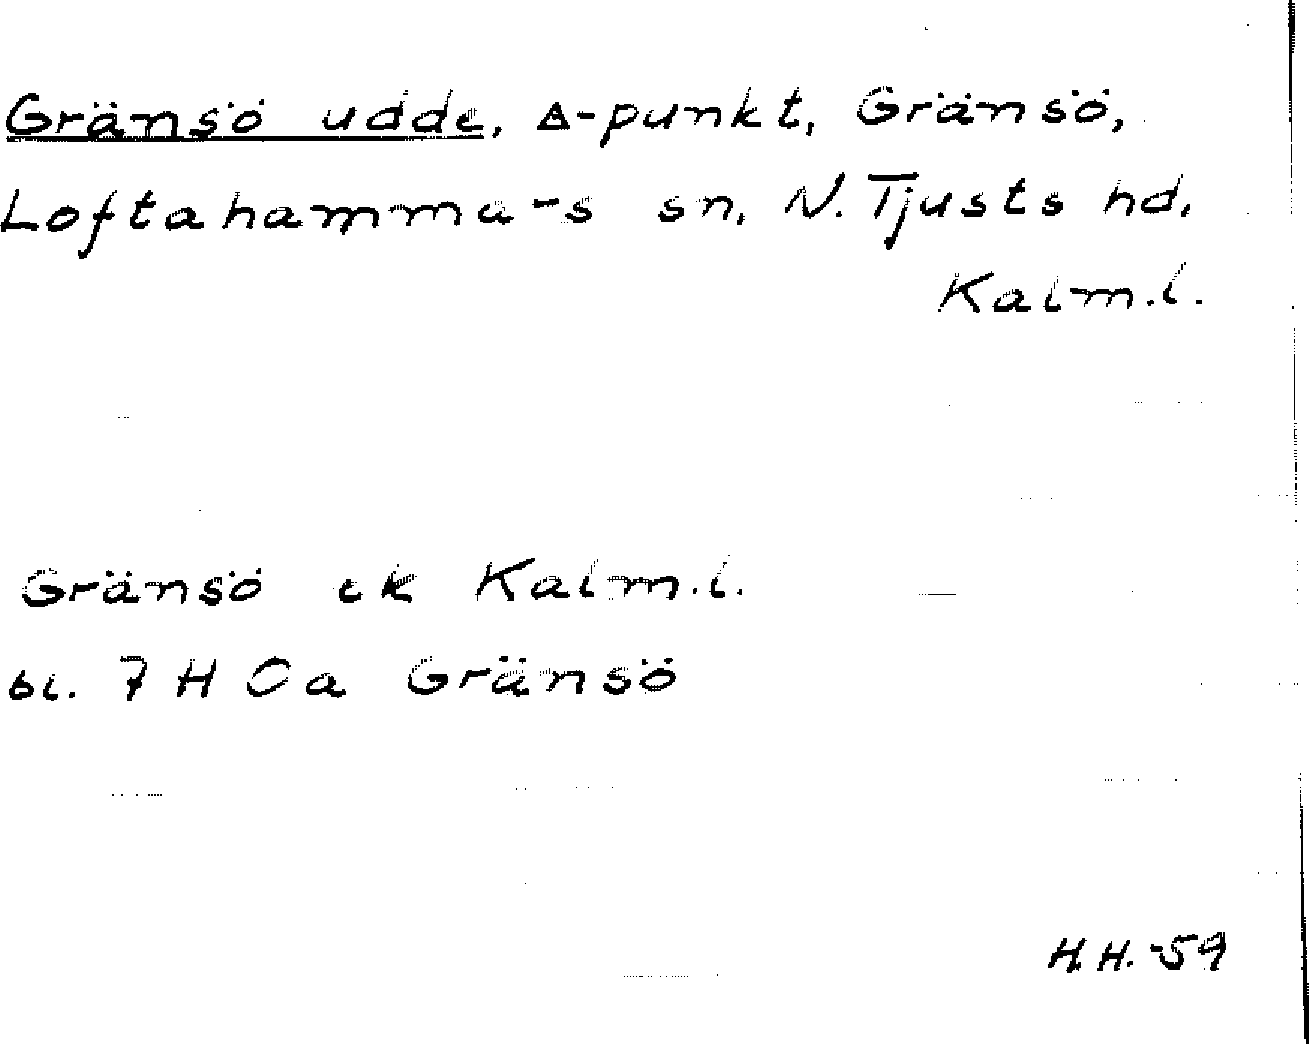 Gränsö udde, Δ-punkt, Gränsö,
Loftahammars sn, N. Tjusts hd,
Kalm.l.
Gränsö ek Kalm.l.
bl. 7 H 0a Gränsö
H.H. -59